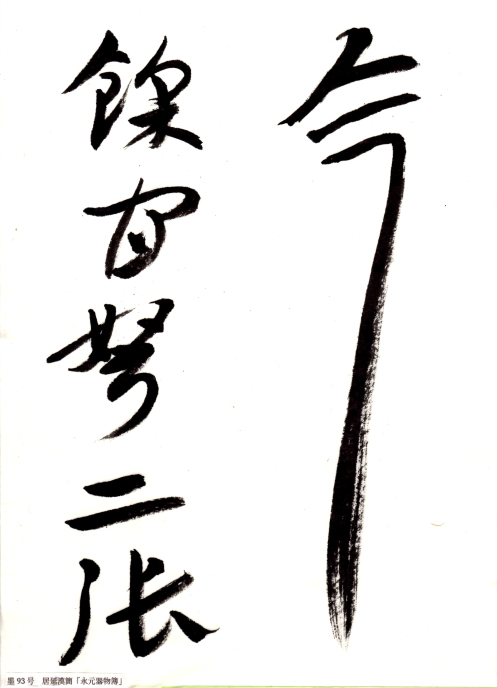 今
餘官弩二張
墨93号 居延漢簡「永元器物簿」